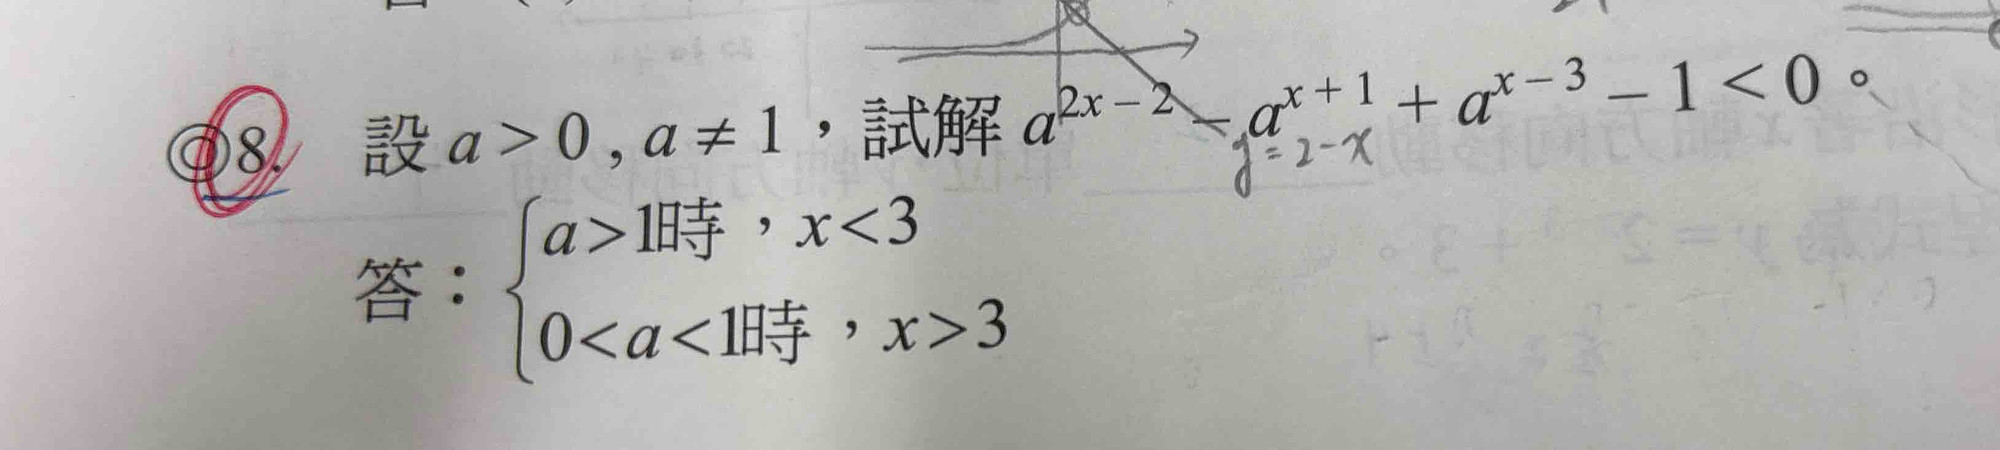 ◎8. 設 a > 0 , a ≠ 1，試解 a^{2x－2} － a^{x＋1} ＋ a^{x－3} － 1 < 0。
y = 2 - x
答：{ a > 1時，x < 3
0 < a < 1時，x > 3